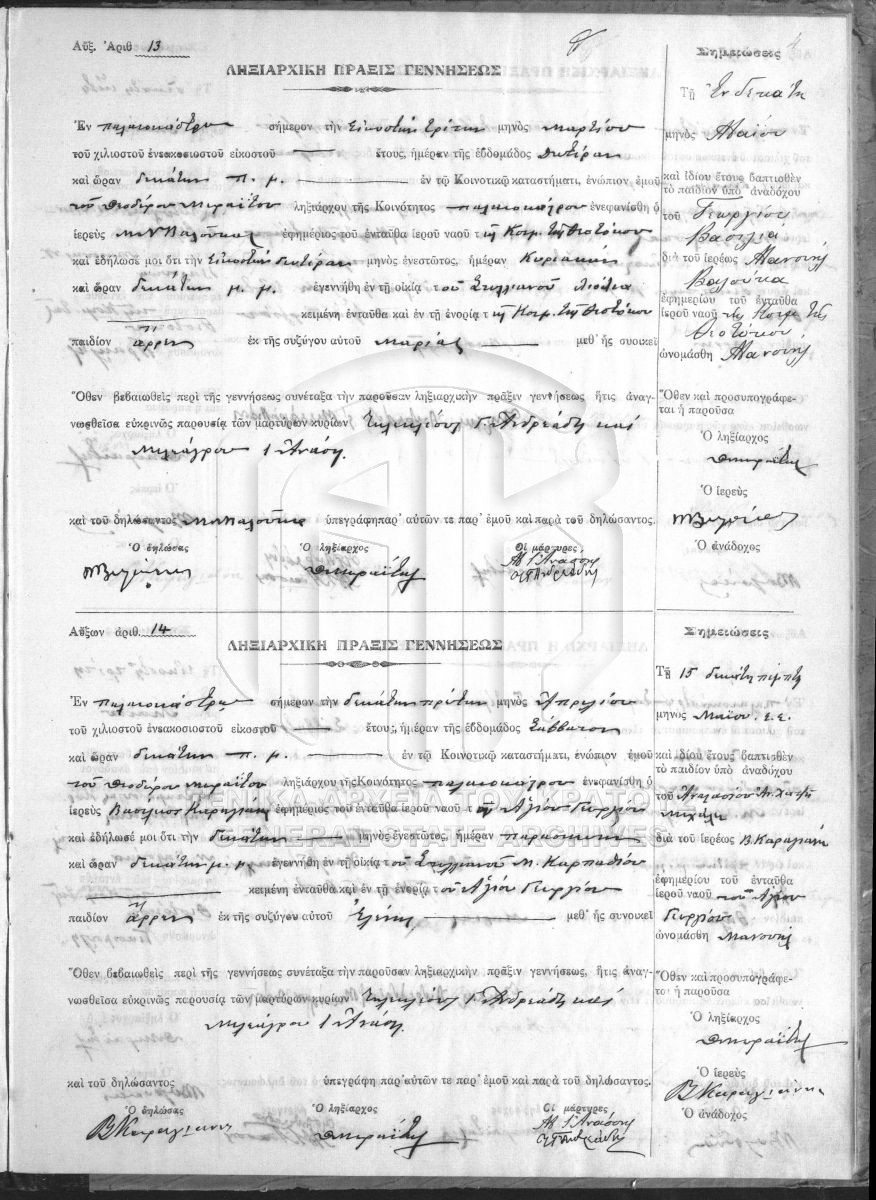 Αὔξ. Ἀριθ 13
ΛΗΞΙΑΡΧΙΚΗ ΠΡΑΞΙΣ ΓΕΝΝΗΣΕΩΣ
Ἐν παλαιοκάστρῳ σήμερον τὴν Εἰκοστὴν τρίτην μηνὸς Μαρτίου
τοῦ χιλιοστοῦ ἐνεακοσιοστοῦ εἰκοστοῦ — ἔτους, ἡμέραν τῆς ἑβδομάδος Δευτέραν
καὶ ὥραν δεκάτην π. μ. — ἐν τῷ Κοινοτικῷ καταστήματι, ἐνώπιον ἐμοῦ
τοῦ Θεοδώρου ληξιάρχου τῆς Κοινότητος παλαιοκάστρου ἐνεφανίσθη ὁ
ἱερεὺς ἐφημέριος τοῦ ἐνταῦθα ἱεροῦ ναοῦ τῆς Κοιμ. τῆς Θεοτόκου
καὶ ἐδήλωσέ μοι ὅτι τὴν Εἰκοστὴν δευτέραν μηνὸς ἐνεστῶτος, ἡμέραν Κυριακὴν
καὶ ὥραν δεκάτην μ. μ. ἐγεννήθη ἐν τῇ οἰκίᾳ τοῦ Στυλιανοῦ
κειμένῃ ἐνταῦθα καὶ ἐν τῇ ἐνορίᾳ τῆς Κοιμ. τῆς Θεοτόκου
παιδίον ἄρρεν ἐκ τῆς συζύγου αὐτοῦ Μαρίας — μεθ' ἧς συνοικεῖ
Ὅθεν βεβαιωθεὶς περὶ τῆς γεννήσεως συνέταξα τὴν παροῦσαν ληξιαρχικὴν πρᾶξιν γεννήσεως ἥτις ἀναγ-
νωσθεῖσα εὐκρινῶς παρουσίᾳ τῶν μαρτύρων κυρίων Γ. Ἀνδρεάδη καὶ
Μελεάγρου Ι Ἀνάση.
καὶ τοῦ δηλώσαντος ὑπεγράφη παρ' αὐτῶν τε παρ' ἐμοῦ καὶ παρὰ τοῦ δηλώσαντος.
Ὁ δηλώσας Ὁ ληξίαρχος Οἱ μάρτυρες
Σημειώσεις
Τῇ Ἑνδεκάτῃ
μηνὸς Μαΐου
καὶ ἰδίου ἔτους βαπτισθὲν
τὸ παιδίον ὑπὸ ἀναδόχου
τοῦ Γεωργίου
Βασιλία
διὰ τοῦ ἱερέως Μανουὴλ
Βαλούκα
ἐφημερίου τοῦ ἐνταῦθα
ἱεροῦ ναοῦ τῆς Κοιμ. τῆς
Θεοτόκου
ὠνομάσθη Μανουὴλ
Ὅθεν καὶ προσυπογράφε-
ται ἡ παροῦσα
Ὁ ληξίαρχος
Ὁ ἱερεὺς
Ὁ ἀνάδοχος
Αὔξων ἀριθ. 14
ΛΗΞΙΑΡΧΙΚΗ ΠΡΑΞΙΣ ΓΕΝΝΗΣΕΩΣ
Ἐν παλαιοκάστρῳ σήμερον τὴν δεκάτην πρώτην μηνὸς Ἀπριλίου
τοῦ χιλιοστοῦ ἐνεακοσιοστοῦ εἰκοστοῦ — ἔτους, ἡμέραν τῆς ἑβδομάδος Σάββατον
καὶ ὥραν δεκάτην π. μ. — ἐν τῷ Κοινοτικῷ καταστήματι, ἐνώπιον ἐμοῦ
τοῦ Θεοδώρου ληξιάρχου τῆς Κοινότητος παλαιοκάστρου ἐνεφανίσθη ὁ
ἱερεὺς Βασίλειος Καραγιάνης ἐφημέριος τοῦ ἐνταῦθα ἱεροῦ ναοῦ τοῦ Ἁγίου Γεωργίου
καὶ ἐδήλωσέ μοι ὅτι τὴν δεκάτην — μηνὸς ἐνεστῶτος, ἡμέραν παρασκευὴν
καὶ ὥραν δεκάτην μ. μ. ἐγεννήθη ἐν τῇ οἰκίᾳ τοῦ Στυλιανοῦ Μ. Καρπαθίου
κειμένῃ ἐνταῦθα καὶ ἐν τῇ ἐνορίᾳ τοῦ Ἁγίου Γεωργίου
παιδίον ἄρρεν ἐκ τῆς συζύγου αὐτοῦ Ἑλένης — μεθ' ἧς συνοικεῖ
Ὅθεν βεβαιωθεὶς περὶ τῆς γεννήσεως συνέταξα τὴν παροῦσαν ληξιαρχικὴν πρᾶξιν γεννήσεως, ἥτις ἀναγ-
νωσθεῖσα εὐκρινῶς παρουσίᾳ τῶν μαρτύρων κυρίων Γ. Ἀνδρεάδη καὶ
Μελεάγρου Ι Ἀνάση.
καὶ τοῦ δηλώσαντος ὑπεγράφη παρ' αὐτῶν τε παρ' ἐμοῦ καὶ παρὰ τοῦ δηλώσαντος.
Ὁ δηλώσας Ὁ ληξίαρχος Οἱ μάρτυρες
Β Καραγιάννης
Σημειώσεις
Τῇ 15 δεκάτῃ πέμπτῃ
μηνὸς Μαΐου. ἔ. ἔ.
καὶ ἰδίου ἔτους βαπτισθὲν
τὸ παιδίον ὑπὸ ἀναδόχου
τοῦ
διὰ τοῦ ἱερέως Β. Καραγιάνη
ἐφημερίου τοῦ ἐνταῦθα
ἱεροῦ ναοῦ τοῦ Ἁγίου
Γεωργίου
ὠνομάσθη Μανουὴλ
Ὅθεν καὶ προσυπογράφε-
το ἡ παροῦσα
Ὁ ληξίαρχος
Ὁ ἱερεὺς
Β Καραγιάννης
Ὁ ἀνάδοχος